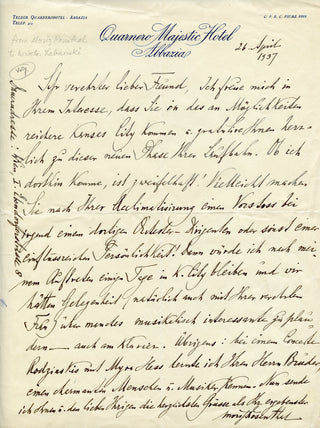 TELEGR. QUARNEROHOTEL - ABBAZIA
TELEF.
C. P. E. C. FIUME
Quarnero Majestic Hotel
Abbazia
from Moriz Rosenthal
t Wiktor Labunski
26. April
1937
Sehr verehrter lieber Freund, Ich freue mich in
Ihrem Interesse, dass Sie in das an Möglichkeiten
reichere Kansas City kommen u. gratuliere Ihnen herz-
lich zu dieser neuen Phase Ihrer Laufbahn. Ob ich
dorthin komme, ist zweifelhaft! Vielleicht machen
Sie nach Ihrer Acclimatisierung einen Vorstoss bei
irgend einem dortigen Orchester-Dirigenten oder sonst einer
einflussreichen Persönlichkeit! Dann würde ich nach mei-
nem Auftreten einige Tage in K. City bleiben und wir
hätten Gelegenheit (natürlich auch mit Ihrer verehrten
Frau) über manches musikalisch interessante zu plau-
dern — auch am Klavier. Übrigens: bei einem Concerte
Rodzinskis mit Myra Hess lernte ich Ihren Herrn Bruder,
einen charmanten Menschen u. Musiker kennen. Nun sende
ich Ihnen u. den lieben Ihrigen die herzlichsten Grüsse als Ihr ergebenster
Moriz Rosenthal
Wien, I.
8